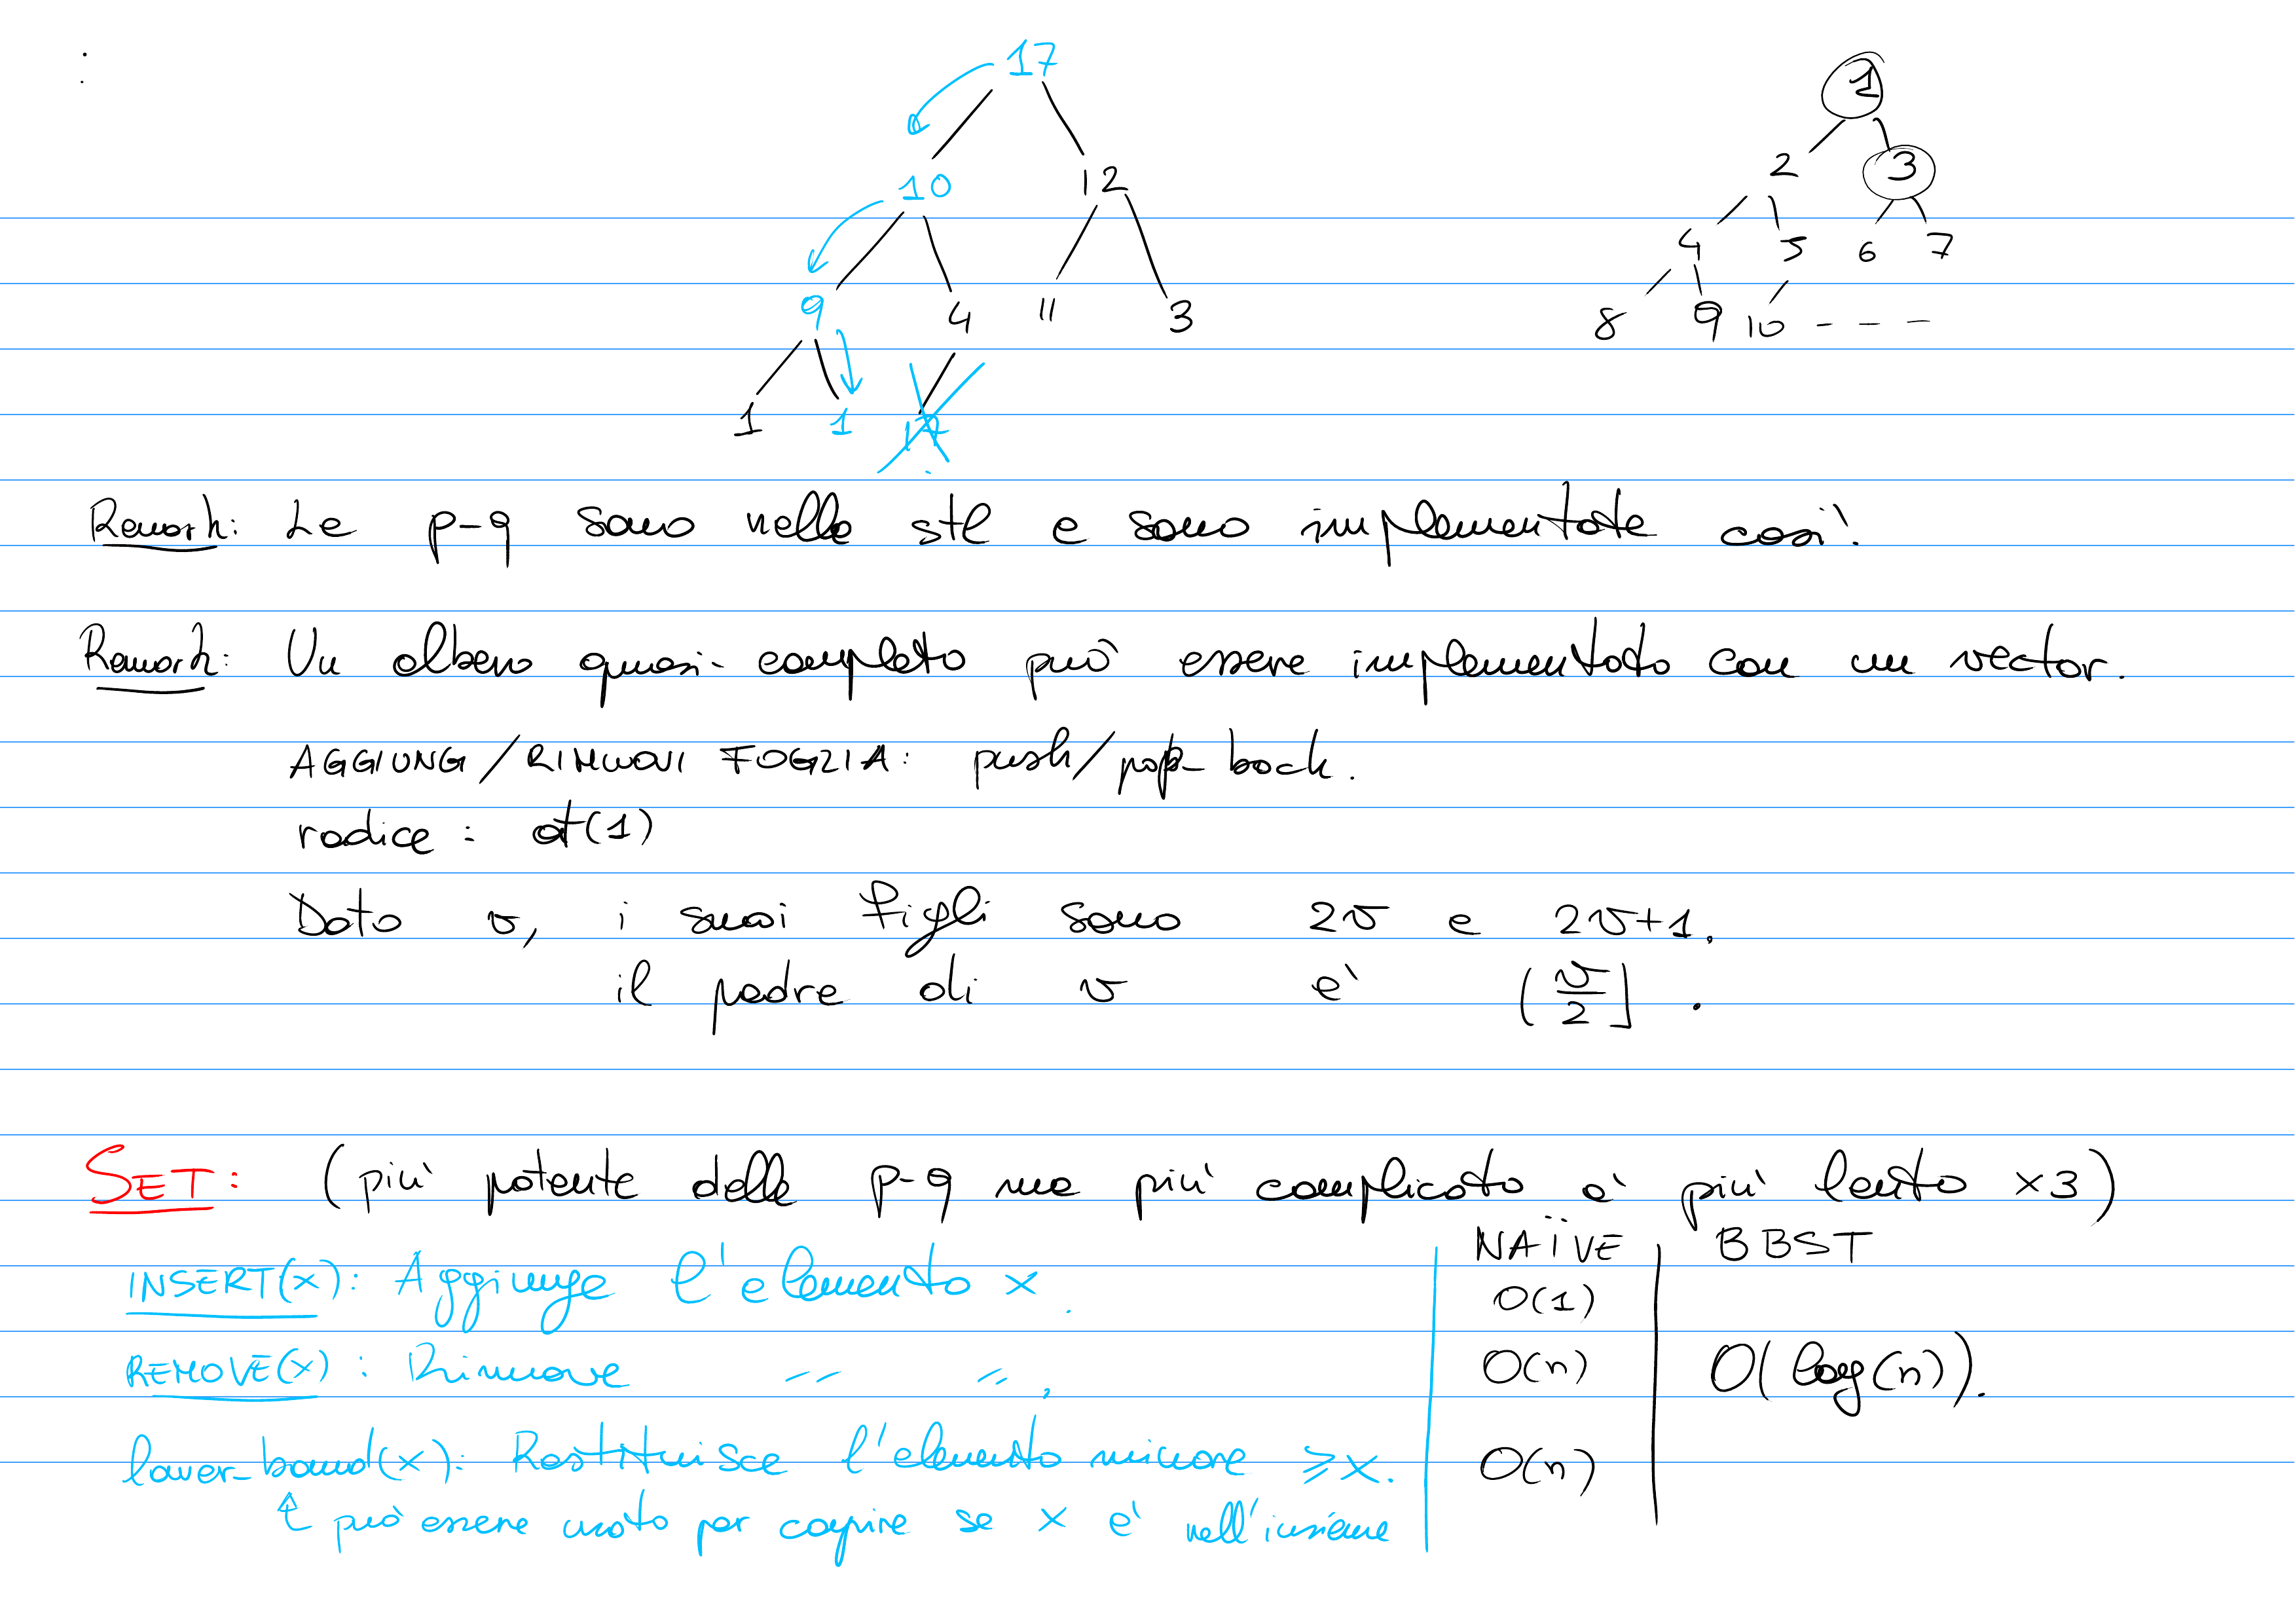 17
1
10 12
2 3
4 5 6 7
9 4 11 3
8 9 10 - - -
1 1 17
Remark: Le p-q sono nella stl e sono implementate così.
Remark: Un albero quasi-completo può essere implementato con un vector.
AGGIUNGI/RIMUOVI FOGLIA: push/pop_back.
radice: at(1)
Dato v, i suoi figli sono 2v e 2v+1.
il padre di v è ⌊v/2⌋.
SET: (più potente delle p-q ma più complicato e più lento ×3)
NAÏVE BBST
INSERT(x): Aggiunge l'elemento x. O(1)
REMOVE(x): Rimuove -- --, O(n) O(log(n)).
lower_bound(x): Restituisce l'elemento minore ≥x. O(n)
↑ può essere usato per capire se x è nell'insieme